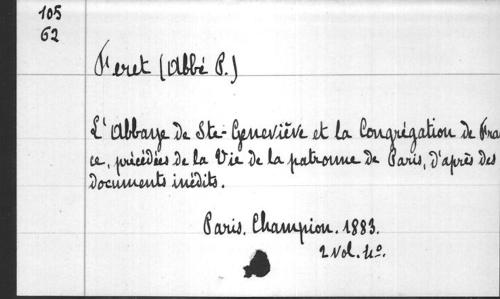 105
62
Feret (Abbé P.)
L'Abbaye de Ste-Geneviève et la Congrégation de Fran
ce, précédées de la Vie de la patronne de Paris, d'après des
documents inédits.
Paris. Champion. 1883.
2 vol. 4º.